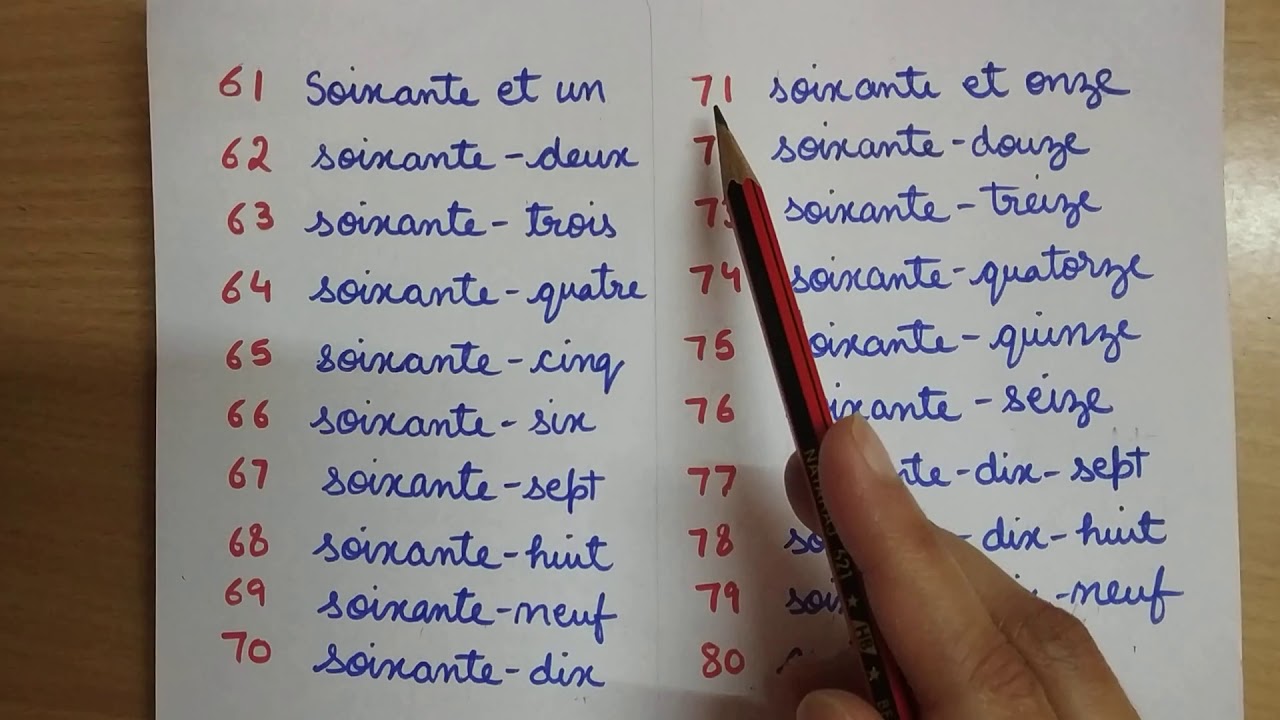 61 Soixante et un
62 soixante-deux
63 soixante-trois
64 soixante-quatre
65 soixante-cinq
66 soixante-six
67 soixante-sept
68 soixante-huit
69 soixante-neuf
70 soixante-dix
71 soixante et onze
soixante-douze
73 soixante-treize
74 soixante-quatorze
75 oixante-quinze
76 ixante-seize
77 te-dix-sept
78 so -dix-huit
79 -neuf
80
521 ★ HB ★